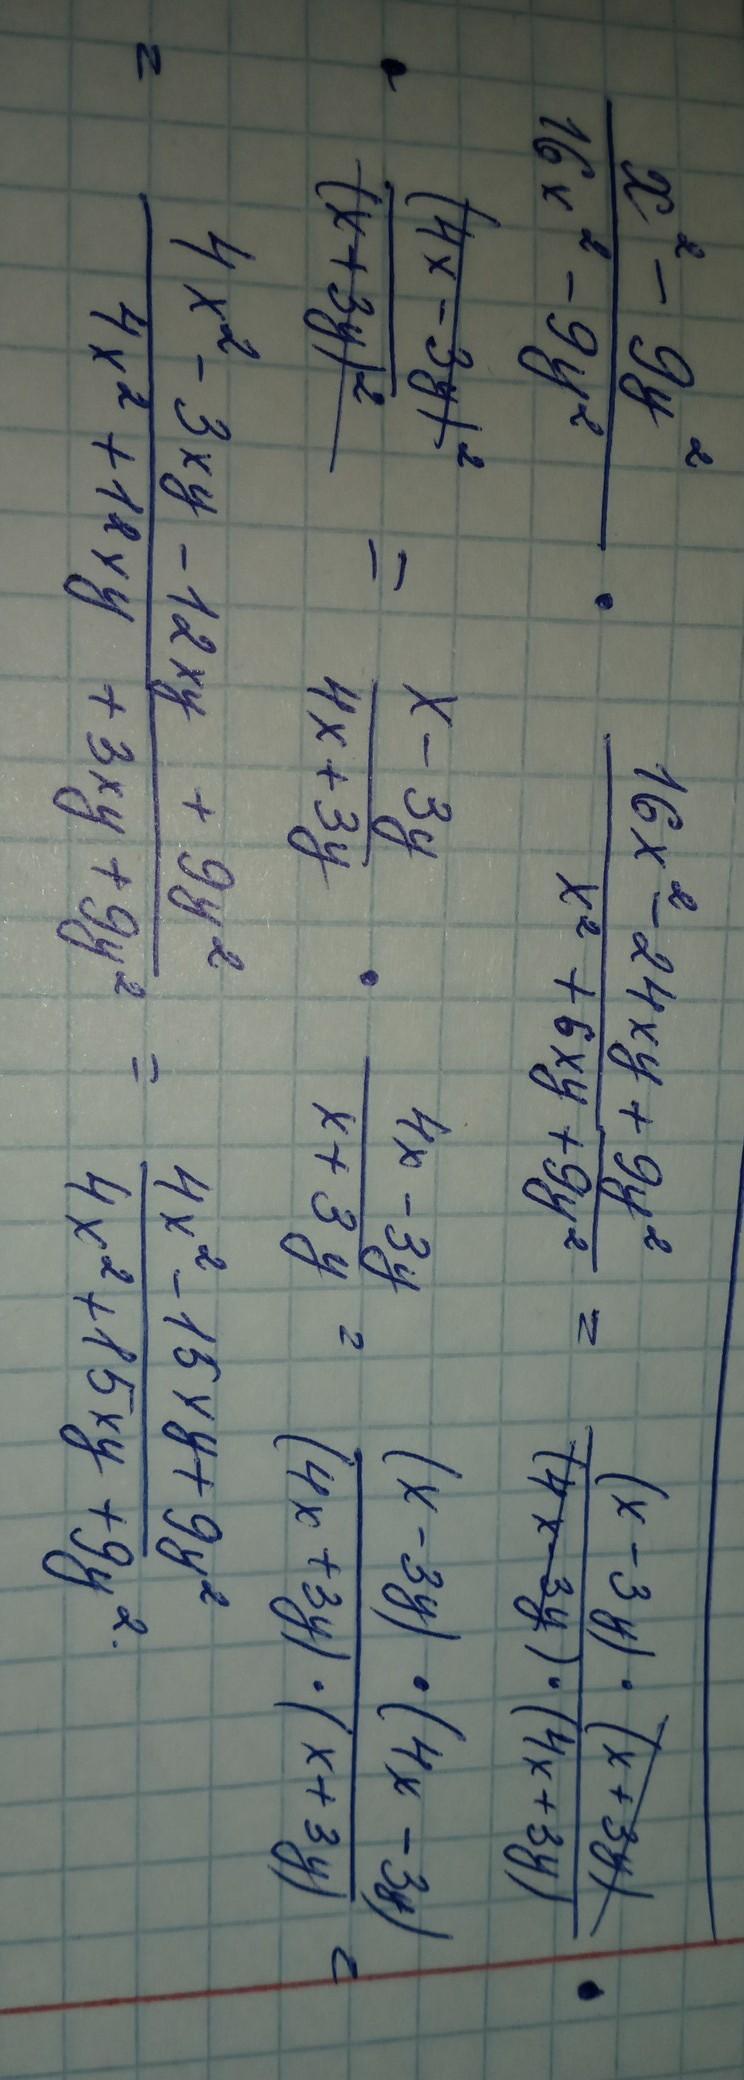 x² - 9y² / 16x² - 9y² · 16x² - 24xy + 9y² / x² + 6xy + 9y² = (x - 3y) · (x + 3y) / (4x - 3y) · (4x + 3y) ·
· (4x - 3y)² / (x + 3y)² = x - 3y / 4x + 3y · 4x - 3y / x + 3y = (x - 3y) · (4x - 3y) / (4x + 3y) · (x + 3y) =
= 4x² - 3xy - 12xy + 9y² / 4x² + 12xy + 3xy + 9y² = 4x² - 15xy + 9y² / 4x² + 15xy + 9y².